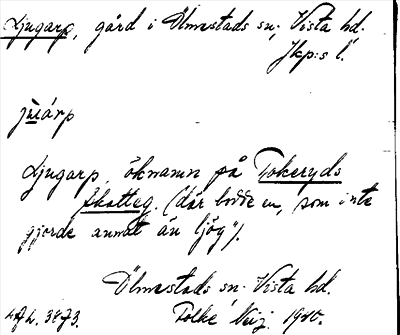 Ljugarp, gård i Ölmstads sn; Vista hd.
Jkp:s l.
Ljugarp, öknamn på Tokeryds
Skatteg. (där bodde en, som inte
gjorde annat än ljög").
Ölmstads sn. Vista hd.
3873. 1900.